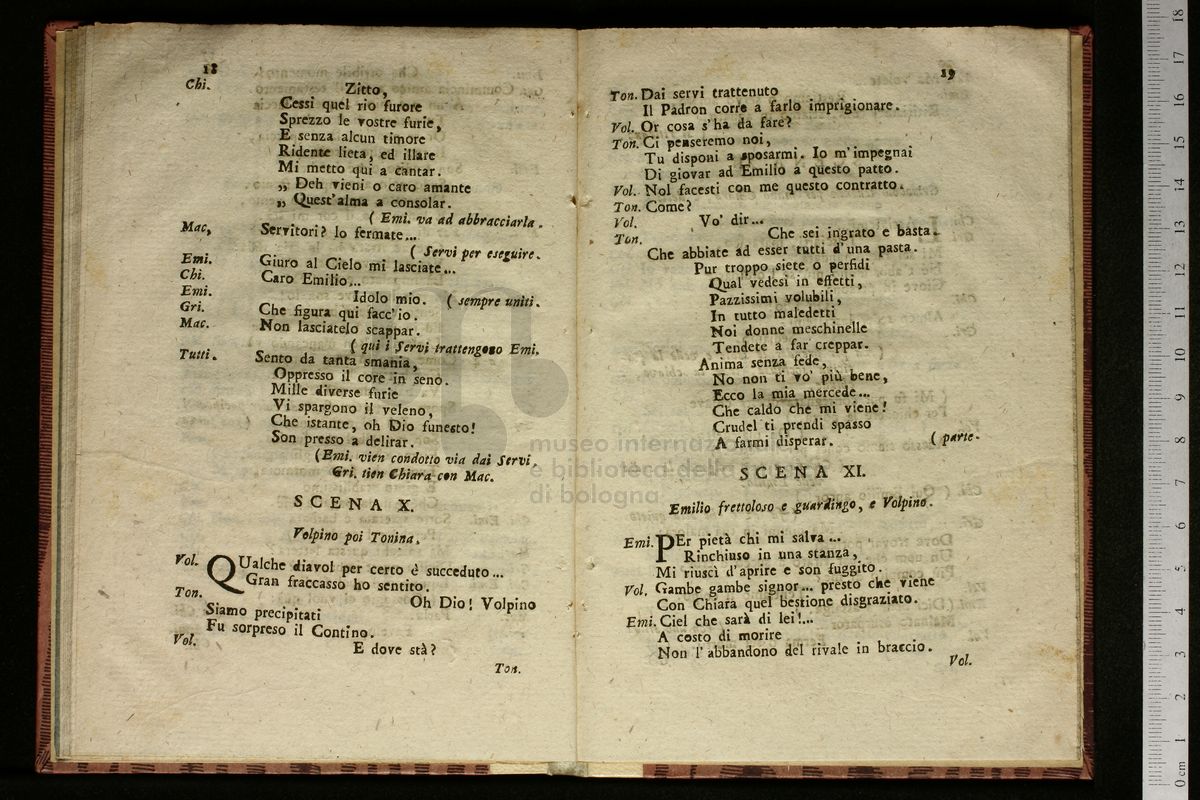 18
Chi. Zitto,
Cessi quel rio furore
Sprezzo le vostre furie,
E senza alcun timore
Ridente lieta, ed illare
Mi metto qui a cantar.
„ Deh vieni o caro amante
„ Quest'alma a consolar.
( Emi. va ad abbracciarla.
Mac, Servitori? lo fermate...
( Servi per eseguire.
Emi. Giuro al Cielo mi lasciate...
Chi. Caro Emilio...
Emi. Idolo mio. ( sempre uniti.
Gri. Che figura qui facc'io.
Mac. Non lasciatelo scappar.
( qui i Servi trattengono Emi.
Tutti. Sento da tanta smania,
Oppresso il core in seno.
Mille diverse furie
Vi spargono il veleno,
Che istante, oh Dio funesto!
Son presso a delirar.
(Emi. vien condotto via dai Servi
Gri. tien Chiara con Mac.
SCENA X.
Volpino poi Tonina.
Vol. QUalche diavol per certo è succeduto...
Gran fraccasso ho sentito.
Ton. Oh Dio! Volpino
Siamo precipitati
Fu sorpreso il Contino.
Vol. E dove stà?
Ton.
19
Ton. Dai servi trattenuto
Il Padron corre a farlo imprigionare.
Vol. Or cosa s'ha da fare?
Ton. Ci penseremo noi,
Tu disponi a sposarmi. Io m'impegnai
Di giovar ad Emilio a questo patto.
Vol. Nol facesti con me questo contratto.
Ton. Come?
Vol. Vo' dir...
Ton. Che sei ingrato e basta.
Che abbiate ad esser tutti d'una pasta.
Pur troppo siete o perfidi
Qual vedesi in effetti,
Pazzissimi volubili,
In tutto maledetti
Noi donne meschinelle
Tendete a far creppar.
Anima senza fede,
No non ti vo' più bene,
Ecco la mia mercede...
Che caldo che mi viene!
Crudel ti prendi spasso
A farmi disperar. ( parte.
SCENA XI.
Emilio frettoloso e guardingo, e Volpino.
Emi. PEr pietà chi mi salva ...
Rinchiuso in una stanza,
Mi riuscì d'aprire e son fuggito.
Vol. Gambe gambe signor... presto che viene
Con Chiara quel bestione disgraziato.
Emi. Ciel che sarà di lei!...
A costo di morire
Non l'abbandono del rivale in braccio.
Vol.
museo internazionale
e biblioteca della musica
di bologna
0 cm 1 2 3 4 5 6 7 8 9 10 11 12 13 14 15 16 17 18